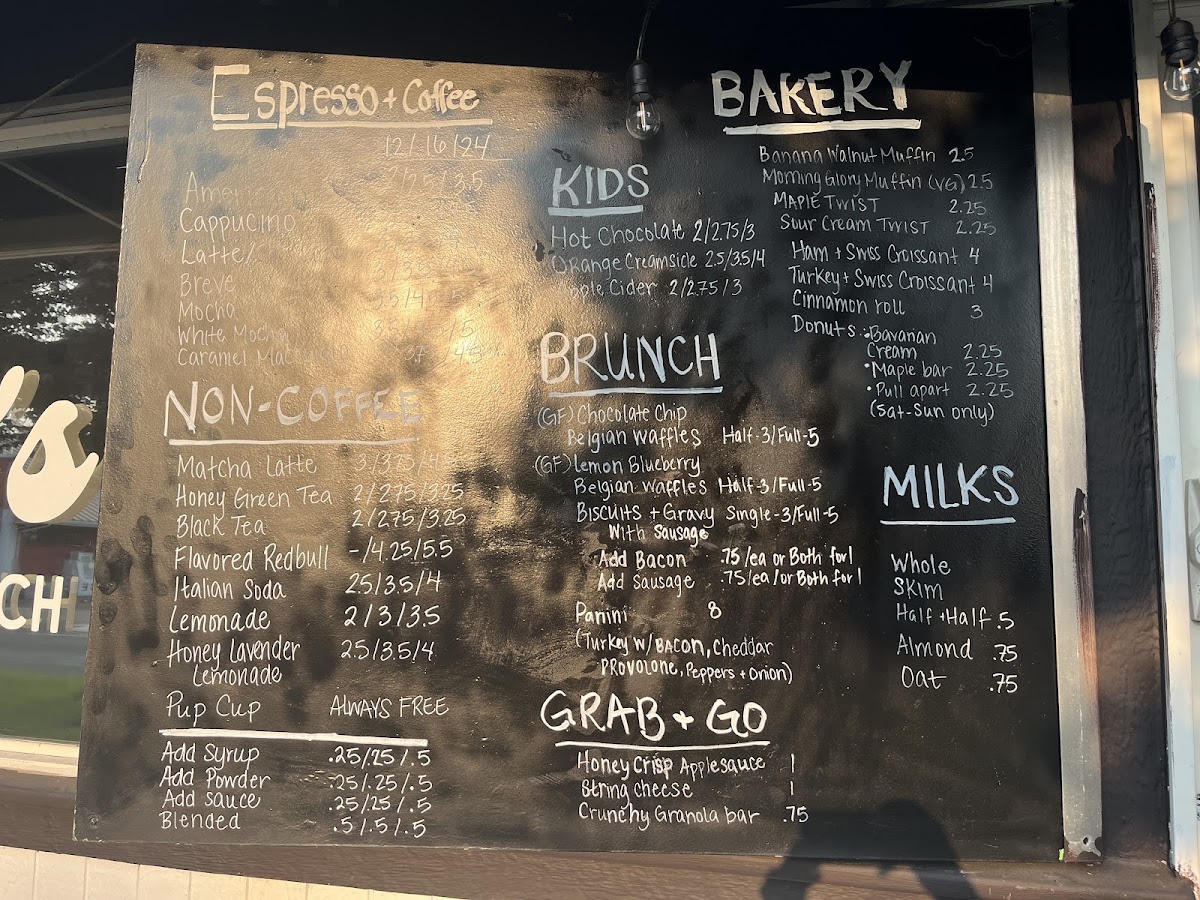 Espresso + Coffee
12/16/24
Cappucino
Latte/
Breve
Mocha
White Mocha
Caramel
NON-COFFEE
Matcha Latte 3/3.75/4.5
Honey Green Tea 2/2.75/3.25
Black Tea 2/2.75/3.25
Flavored Redbull -/4.25/5.5
Italian Soda 2.5/3.5/4
Lemonade 2/3/3.5
Honey Lavender 2.5/3.5/4
Lemonade
Pup Cup ALWAYS FREE
Add Syrup .25/.25/.5
Add Powder .25/.25/.5
Add Sauce .25/.25/.5
Blended .5/.5/.5
KIDS
Hot Chocolate 2/2.75/3
Orange Creamsicle 2.5/3.5/4
Apple Cider 2/2.75/3
BRUNCH
(GF) Chocolate Chip
Belgian Waffles Half-3/Full-5
(GF) Lemon Blueberry
Belgian Waffles Half-3/Full-5
Biscuits + Gravy Single-3/Full-5
With Sausage
Add Bacon .75/ea or Both for 1
Add Sausage .75/ea/or Both for 1
Panini 8
(Turkey w/ Bacon, Cheddar
Provolone, Peppers + Onion)
GRAB + GO
Honey Crisp Applesauce 1
String cheese 1
Crunchy Granola bar .75
BAKERY
Banana Walnut Muffin 2.5
Morning Glory Muffin (VG) 2.5
MAPLE TWIST 2.25
Sour Cream TWIST 2.25
Ham + Swiss Croissant 4
Turkey + Swiss Croissant 4
Cinnamon roll 3
Donuts: • Bavarian
Cream 2.25
• Maple bar 2.25
• Pull apart 2.25
(Sat-Sun only)
MILKS
Whole
Skim
Half + Half .5
Almond .75
Oat .75
's
CH